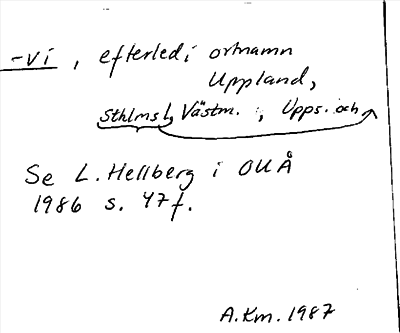 -vi, efterled i ortnamn
Uppland,
Sthlms l, Västm. l, Upps. och
Se L. Hellberg i OUÅ
1986 s. 47f.
A.Km. 1987